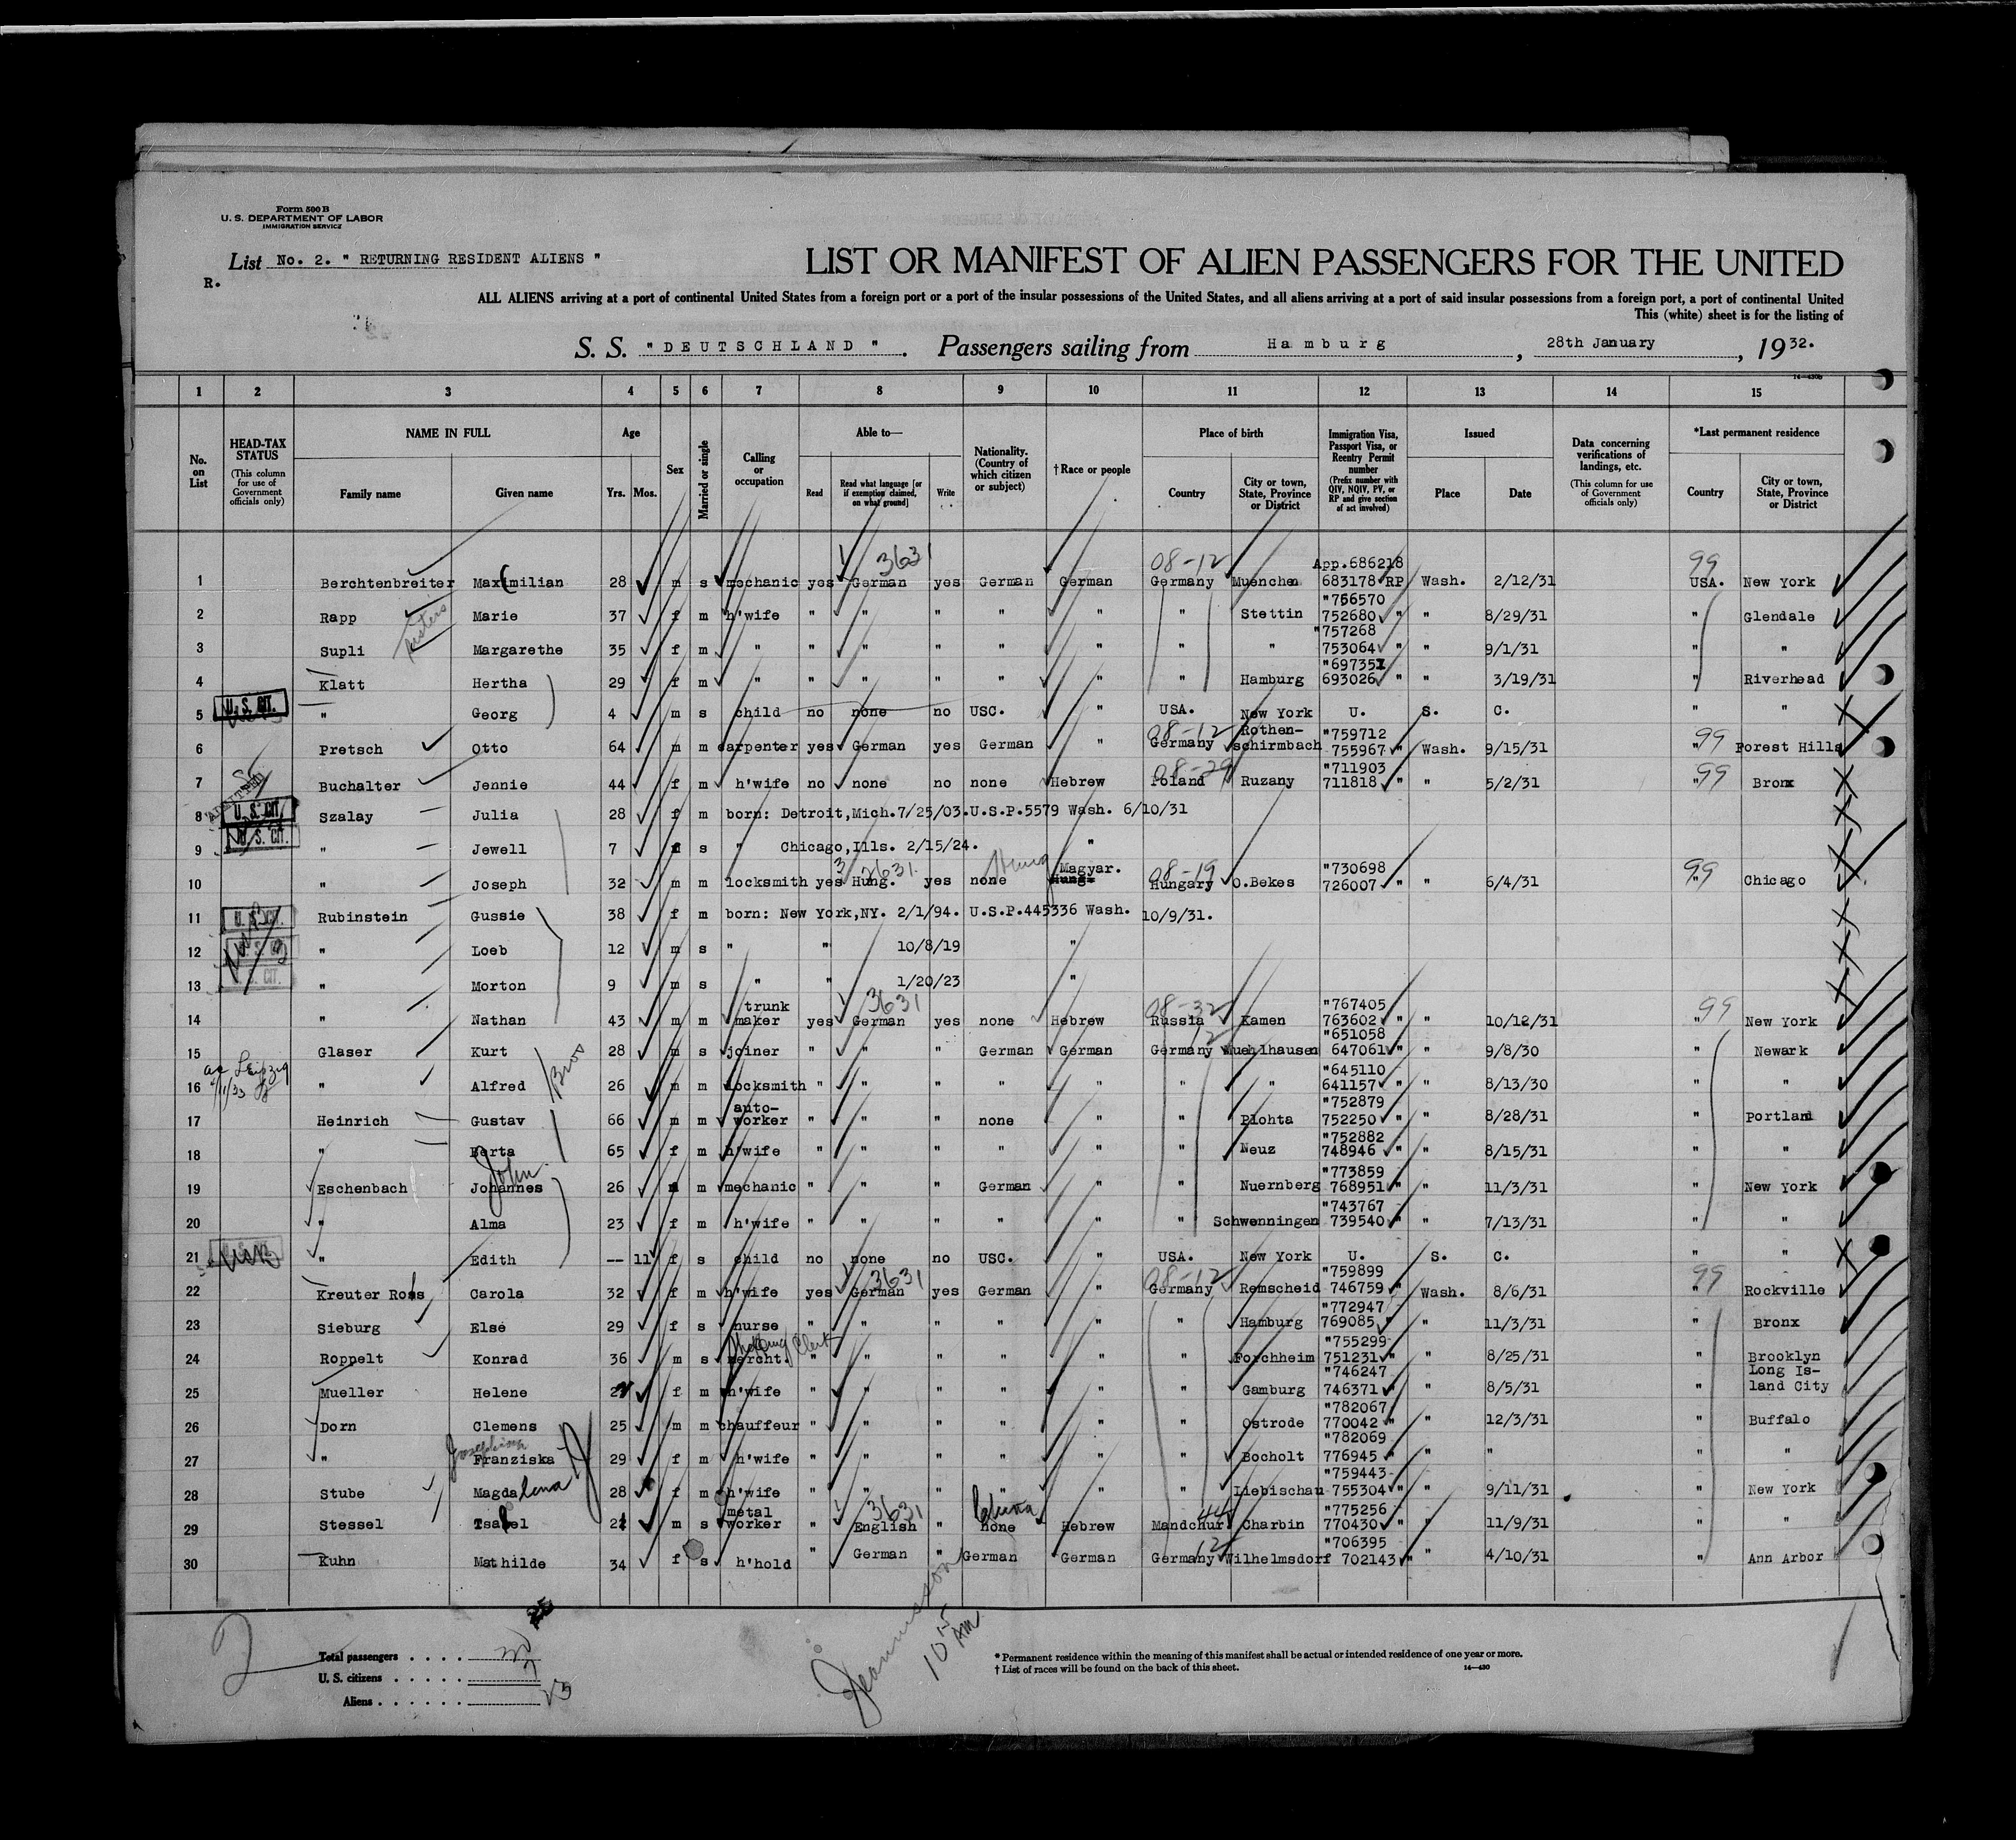 Form 500 B
U. S. DEPARTMENT OF LABOR
IMMIGRATION SERVICE
List No. 2. " RETURNING RESIDENT ALIENS "
R.
LIST OR MANIFEST OF ALIEN PASSENGERS FOR THE UNITED
ALL ALIENS arriving at a port of continental United States from a foreign port or a port of the insular possessions of the United States, and all aliens arriving at a port of said insular possessions from a foreign port, a port of continental United
This (white) sheet is for the listing of
S. S. " DEUTSCHLAND " . Passengers sailing from Hamburg , 28th January , 19 32.
14—430b
1 2 3 4 5 6 7 8 9 10 11 12 13 14 15
No. on List
HEAD-TAX STATUS (This column for use of Government officials only)
NAME IN FULL Family name Given name
Age Yrs. Mos.
Sex
Married or single
Calling or occupation
Able to— Read Read what language [or if exemption claimed, on what ground] Write
Nationality. (Country of which citizen or subject)
†Race or people
Place of birth Country City or town, State, Province or District
Immigration Visa, Passport Visa, or Reentry Permit number (Prefix number with QIV, NQIV, PV, or RP and give section of act involved)
Issued Place Date
Data concerning verifications of landings, etc. (This column for use of Government officials only)
*Last permanent residence Country City or town, State, Province or District
3631 08-12 App.686218 99
1 Berchtenbreiter Maximilian 28 m s mechanic yes German yes German German Germany Muenchen 683178 RP Wash. 2/12/31 USA. New York
"756570
2 Rapp Marie 37 f m h'wife " " " " " " Stettin 752680 " " 8/29/31 " Glendale
sisters
"757268
3 Supli Margarethe 35 f m " " " " " " " " 753064 " " 9/1/31 " "
"697352
4 Klatt Hertha 29 f m " " " " " " " Hamburg 693026 " " 3/19/31 " Riverhead
5 U. S. CIT. " Georg 4 m s child no none no USC. " USA. New York U. S. C. " "
08-12 Rothen- "759712 99
6 Pretsch Otto 64 m m carpenter yes German yes German " Germany schirmbach 755967 " Wash. 9/15/31 " Forest Hills
08-29 "711903 99
7 Buchalter Jennie 44 f m h'wife no none no none Hebrew Poland Ruzany 711818 " " 5/2/31 " Bronx
8 U.S. CIT. Szalay Julia 28 f m born: Detroit,Mich.7/25/03.U.S.P.5579 Wash. 6/10/31
9 U. S. CIT. " Jewell 7 f s " Chicago,Ills. 2/15/24. "
3631 Hung Magyar. 08-19 "730698 99
10 " Joseph 32 m m locksmith yes Hung. yes none Hung. Hungary O.Bekes 726007 " " 6/4/31 " Chicago
11 U. S. CIT. Rubinstein Gussie 38 f m born: New York,NY. 2/1/94. U.S.P.445336 Wash. 10/9/31.
12 U. S. CIT. " Loeb 12 m s " " 10/8/19 "
13 U. S. CIT. " Morton 9 m s " " 1/20/23 "
trunk 3631 08-32 "767405 99
14 " Nathan 43 m m maker yes German yes none Hebrew Russia Kamen 763602 " " 10/12/31 " New York
12 "651058
15 Glaser Kurt 28 m s joiner " " " German German Germany Muehlhausen 647061 " " 9/8/30 " Newark
Bros "645110
16 " Alfred 26 m m locksmith " " " " " " " 641157 " " 8/13/30 " "
auto- "752879
17 Heinrich Gustav 66 m m worker " " " none " " Plohta 752250 " " 8/28/31 " Portland
"752882
18 " Berta 65 f m h'wife " " " " " " Neuz 748946 " " 8/15/31 " "
John "773859
19 Eschenbach Johannes 26 m m mechanic " " " German " " Nuernberg 768951 " " 11/3/31 " New York
"743767
20 " Alma 23 f m h'wife " " " " " " Schwenningen 739540 " " 7/13/31 " "
21 " Edith -- 11 f s child no none no USC. " USA. New York U. S. C. " "
3631 08-12 "759899 99
22 Kreuter Ross Carola 32 f m h'wife yes German yes German " Germany Remscheid 746759 " Wash. 8/6/31 " Rockville
"772947
23 Sieburg Else 29 f s nurse " " " " " " Hamburg 769085 " " 11/3/31 " Bronx
Clerk "755299
24 Roppelt Konrad 36 m s mercht. " " " " " " Forchheim 751231 " " 8/25/31 " Brooklyn
"746247 Long Is-
25 Mueller Helene f m h'wife " " " " " " Gamburg 746371 " " 8/5/31 " land City
"782067
26 Dorn Clemens 25 m m chauffeur " " " " " " Ostrode 770042 " " 12/3/31 " Buffalo
Josephine "782069
27 " Franziska 29 f m h'wife " " " " " " Bocholt 776945 " " " " "
"759443
28 Stube Magdalena 28 f m h'wife " " " " " " Liebischau 755304 " " 9/11/31 " New York
metal 3631 China 44 "775256
29 Stessel Tsabel m s worker " English " none Hebrew Mandchur. Charbin 770430 " " 11/9/31 " "
12 "706395
30 Kuhn Mathilde 34 f s h'hold " German " German German Germany Wilhelmsdorf 702143 " " 4/10/31 " Ann Arbor
2
Total passengers . . . .
U. S. citizens . . . . . .
Aliens . . . . . .
10 15 AM
* Permanent residence within the meaning of this manifest shall be actual or intended residence of one year or more.
† List of races will be found on the back of this sheet. 14—430